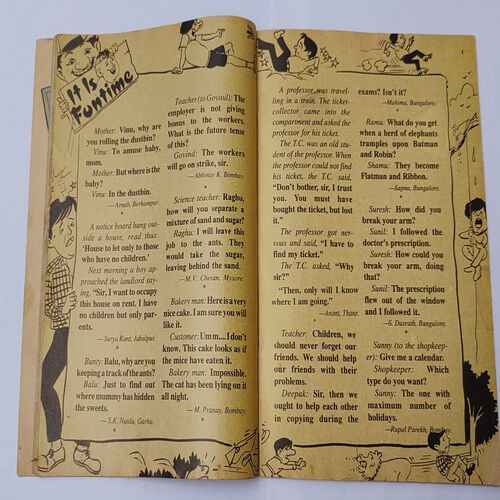 It Is
Funtime
Mother: Vinu, why are
you rolling the dustbin?
Vinu: To amuse baby,
mom.
Mother: But where is the
baby?
Vinu: In the dustbin.
— Arnab, Berhampur.
A notice board hung out-
side a house, read thus:
'House to let only to those
who have no children.'
Next morning a boy ap-
proached the landlord say-
ing, "Sir, I want to occupy
this house on rent. I have
no children but only par-
ents.
— Surya Kant, Jabalpur.
Bunty: Balu, why are you
keeping a track of the ants?
Balu: Just to find out
where mummy has hidden
the sweets.
— S.K. Naidu, Garha.
Teacher (to Govind): The
employer is not giving
bonus to the workers,
What is the future tense
of this?
Govind: The workers
will go on strike, sir.
— Abhinay K. Bombay.
Science teacher: Raghu,
how will you separate a
mixture of sand and sugar?
Raghu: I will leave this
job to the ants. They
would take the sugar,
leaving behind the sand.
— M.V. Chetan, Mysore.
Bakery man: Here is a very
nice cake. I am sure you
will like it.
Customer: Umm.... I don't
know. This cake looks as if
the mice have eaten it.
Bakery man: Impossible.
The cat has been lying on it
all night.
— M. Pranay, Bombay.
A professor was travel-
ling in a train. The ticket-
collector came into the
compartment and asked the
professor for his ticket.
The T.C. was an old stu-
dent of the professor. When
the professor could not find
his ticket, the T.C. said,
"Don't bother, sir, I trust
you. You must have
bought the ticket, but lost
it."
The professor got ner-
vous and said, "I have to
find my ticket."
The T.C. asked, "Why
sir?"
"Then, only will I know
where I am going."
— Anant, Thane.
Teacher: Children, we
should never forget our
friends. We should help
our friends with their
problems.
Deepak: Sir, then we
ought to help each other
in copying during the
exams? Isn't it?
— Mahima, Bangalore.
Ramu: What do you get
when a herd of elephants
tramples upon Batman
and Robin?
Shamu: They become
Flatman and Ribbon.
— Sapna, Bangalore.
Suresh: How did you
break your arm?
Sunil: I followed the
doctor's prescription.
Suresh: How could you
break your arm, doing
that?
Sunil: The prescription
flew out of the window
and I followed it.
— S. Dasrath, Bangalore.
Sunny (to the shopkeep-
er): Give me a calendar.
Shopkeeper: Which
type do you want?
Sunny: The one with
maximum number of
holidays.
— Rupal Parekh, Bombay.